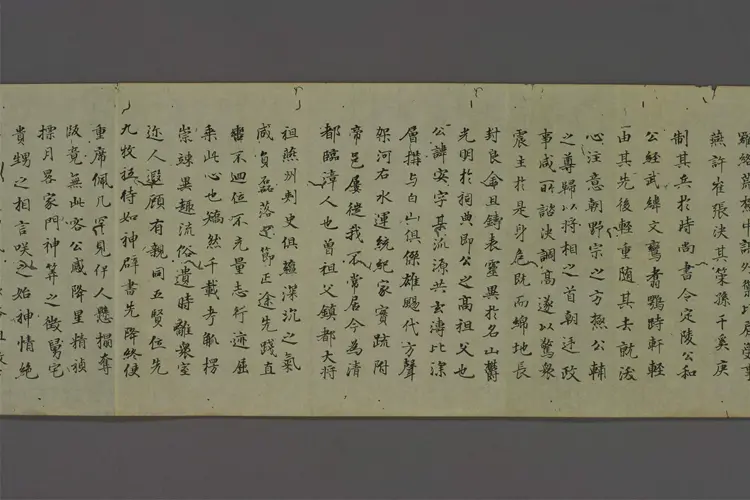 燕許崔張決其策孫千奚庚
制其兵於時尚書令定陵公和
公經武緯文鸞翥鸚時軒輊
由其先後輕重隨其去就深
心注意朝野宗之方極公輔
之尊歸以將相之首朝廷政
事咸所諮決謂高遂以驚眾
震主於是身危既而綿地長
封良侖且鑄表靈異於名山欝
光明於祠典即公之高祖父也
公諱寔字某派源共玄溥比深
層構与白山俱傑雄颺代方聲
架河右水運統紀家實疏附
帝邑屢徙我不常居今為清
都臨漳人也曾祖父鎮都大將
祖燕州刺史俱蘊深沉之氣
咸負磊落之節正途先踐直
轡不迴位不充量志行迹屈
乘此心也矯然千載考觚楞
崇竦異趣流俗遺時離眾室
迩人遐顧有親同五賢位先
九牧祗待如神辟書先降終使
重席佩几罕見伊人懸榻奪
坂竟無此客公感降星精禎
摽月晷家門神筭之徵舅宅
貴甥之相言咲之始神情絶